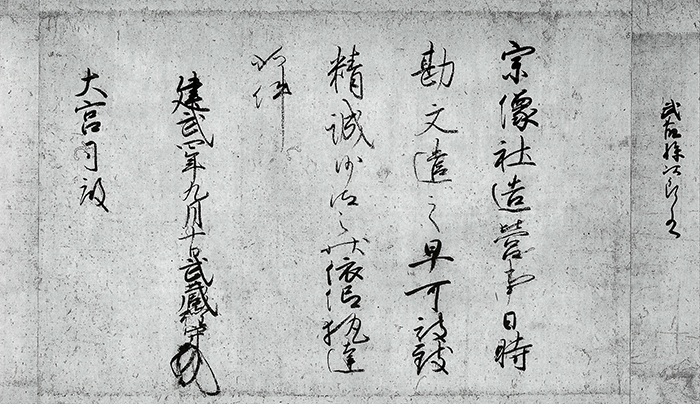 宗像社造営事日時
勘文遣之早可被致
精誠沙汰之状依仰執達
如件
建武四年九月日武蔵権守
大宮司殿